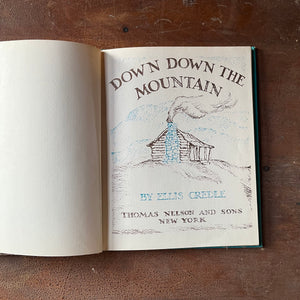 DOWN DOWN THE
MOUNTAIN
BY ELLIS CREDLE
THOMAS NELSON AND SONS
NEW YORK